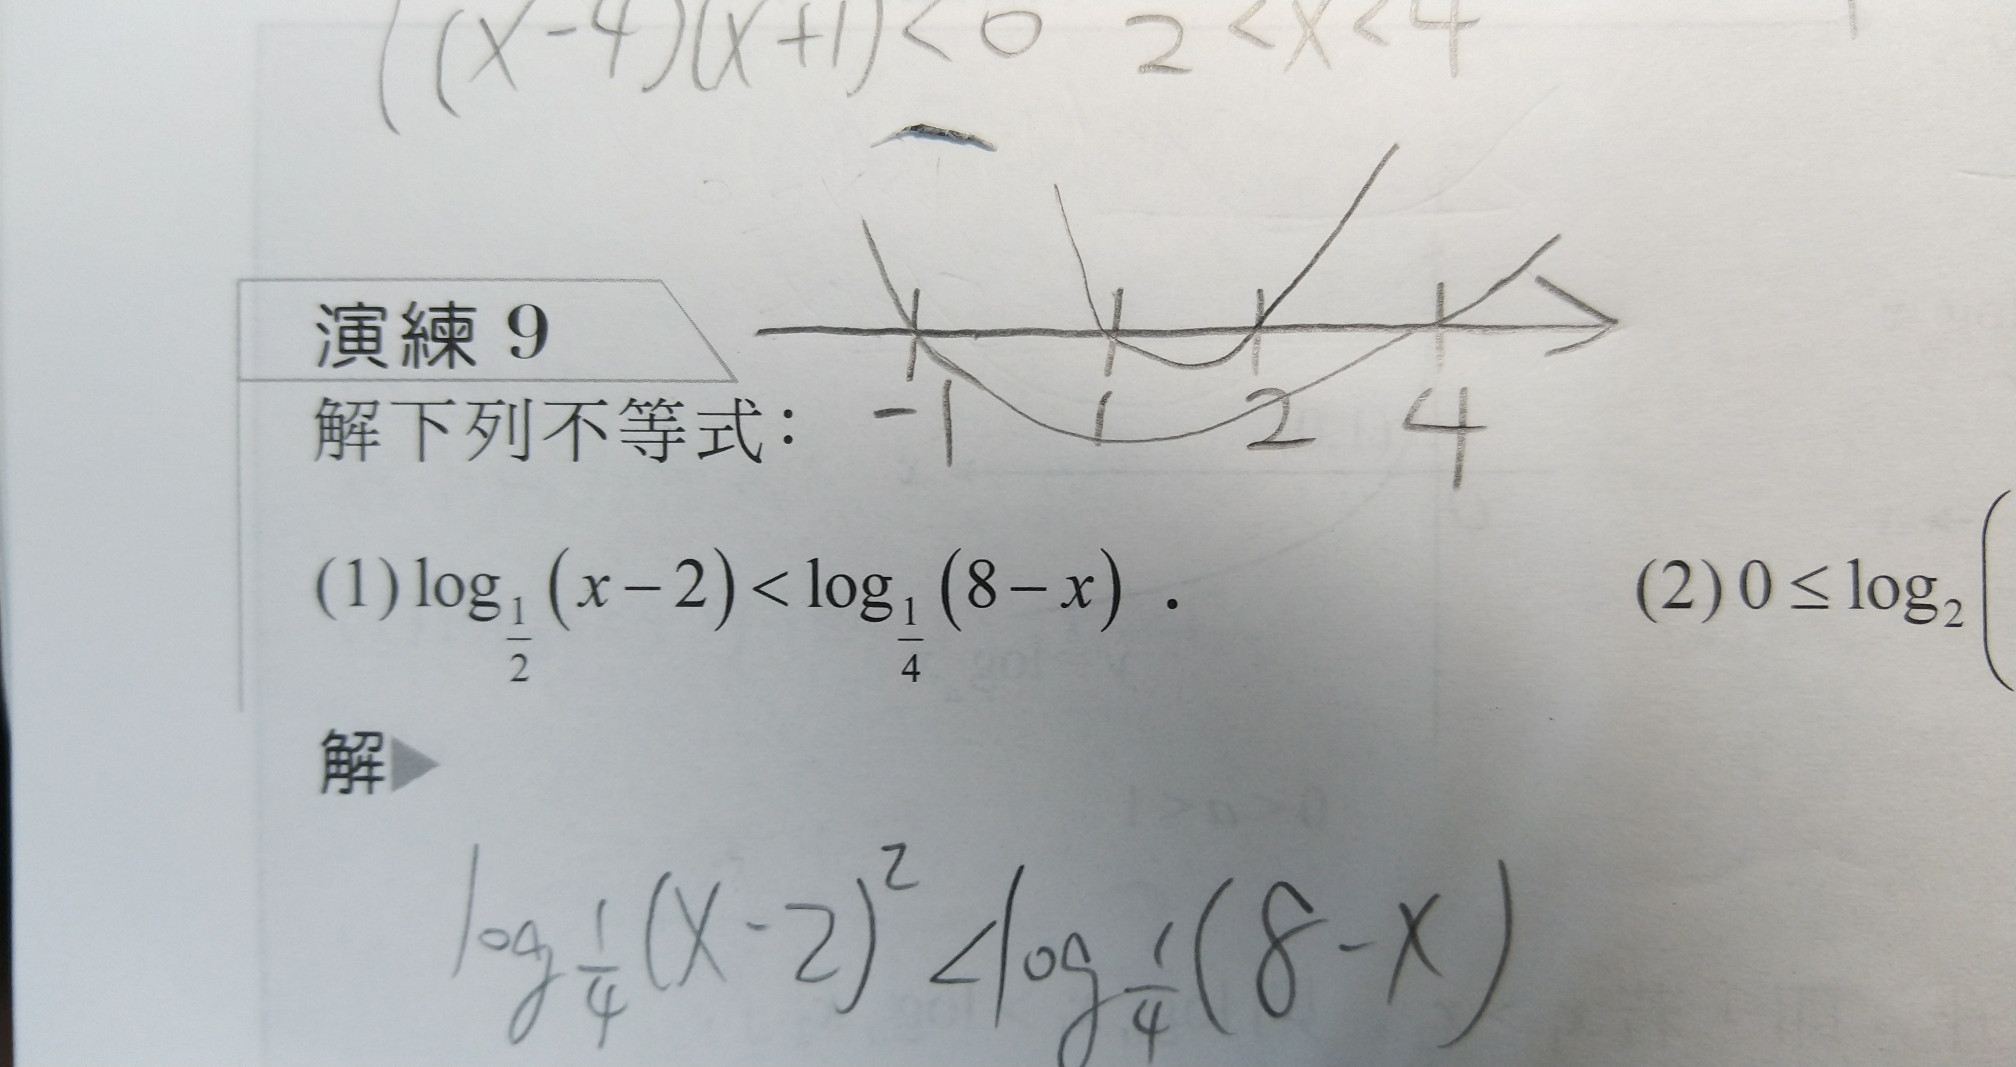 ((x-4)(x+1)<0 2<x<4
演練 9
解下列不等式： -1 1 2 4
(1) log_{1/2}(x-2)<log_{1/4}(8-x) .
(2) 0≤log_2(
解▶
log_{1/4}(x-2)^2<log_{1/4}(8-x)